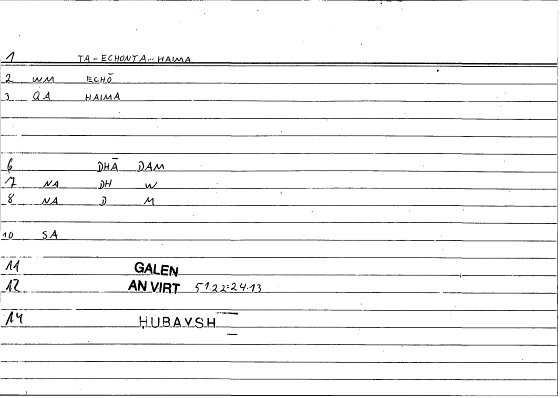 1 TA-ECHONTA-HAIMA
2 WM ECHŌ
3 QA HAIMA
6 DHĀ DAM
7 NA DH W
8 NA D M
10 SA
11 GALEN
12 AN VIRT 5122:24.13
14 ḤUBAYSH